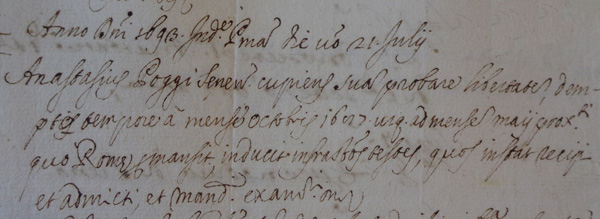 Anno Dni 1693. Ind.e Pma die vo 21. Julij
Anastasius Poggi Senen. cupiens sua probare libertate, dem-
pto tempore à mense Octobris usq. ad mensem maij prox.
quo Rome mansit, inducit infrastos testes, quos instat recipi
et admicti, et mand. exam.